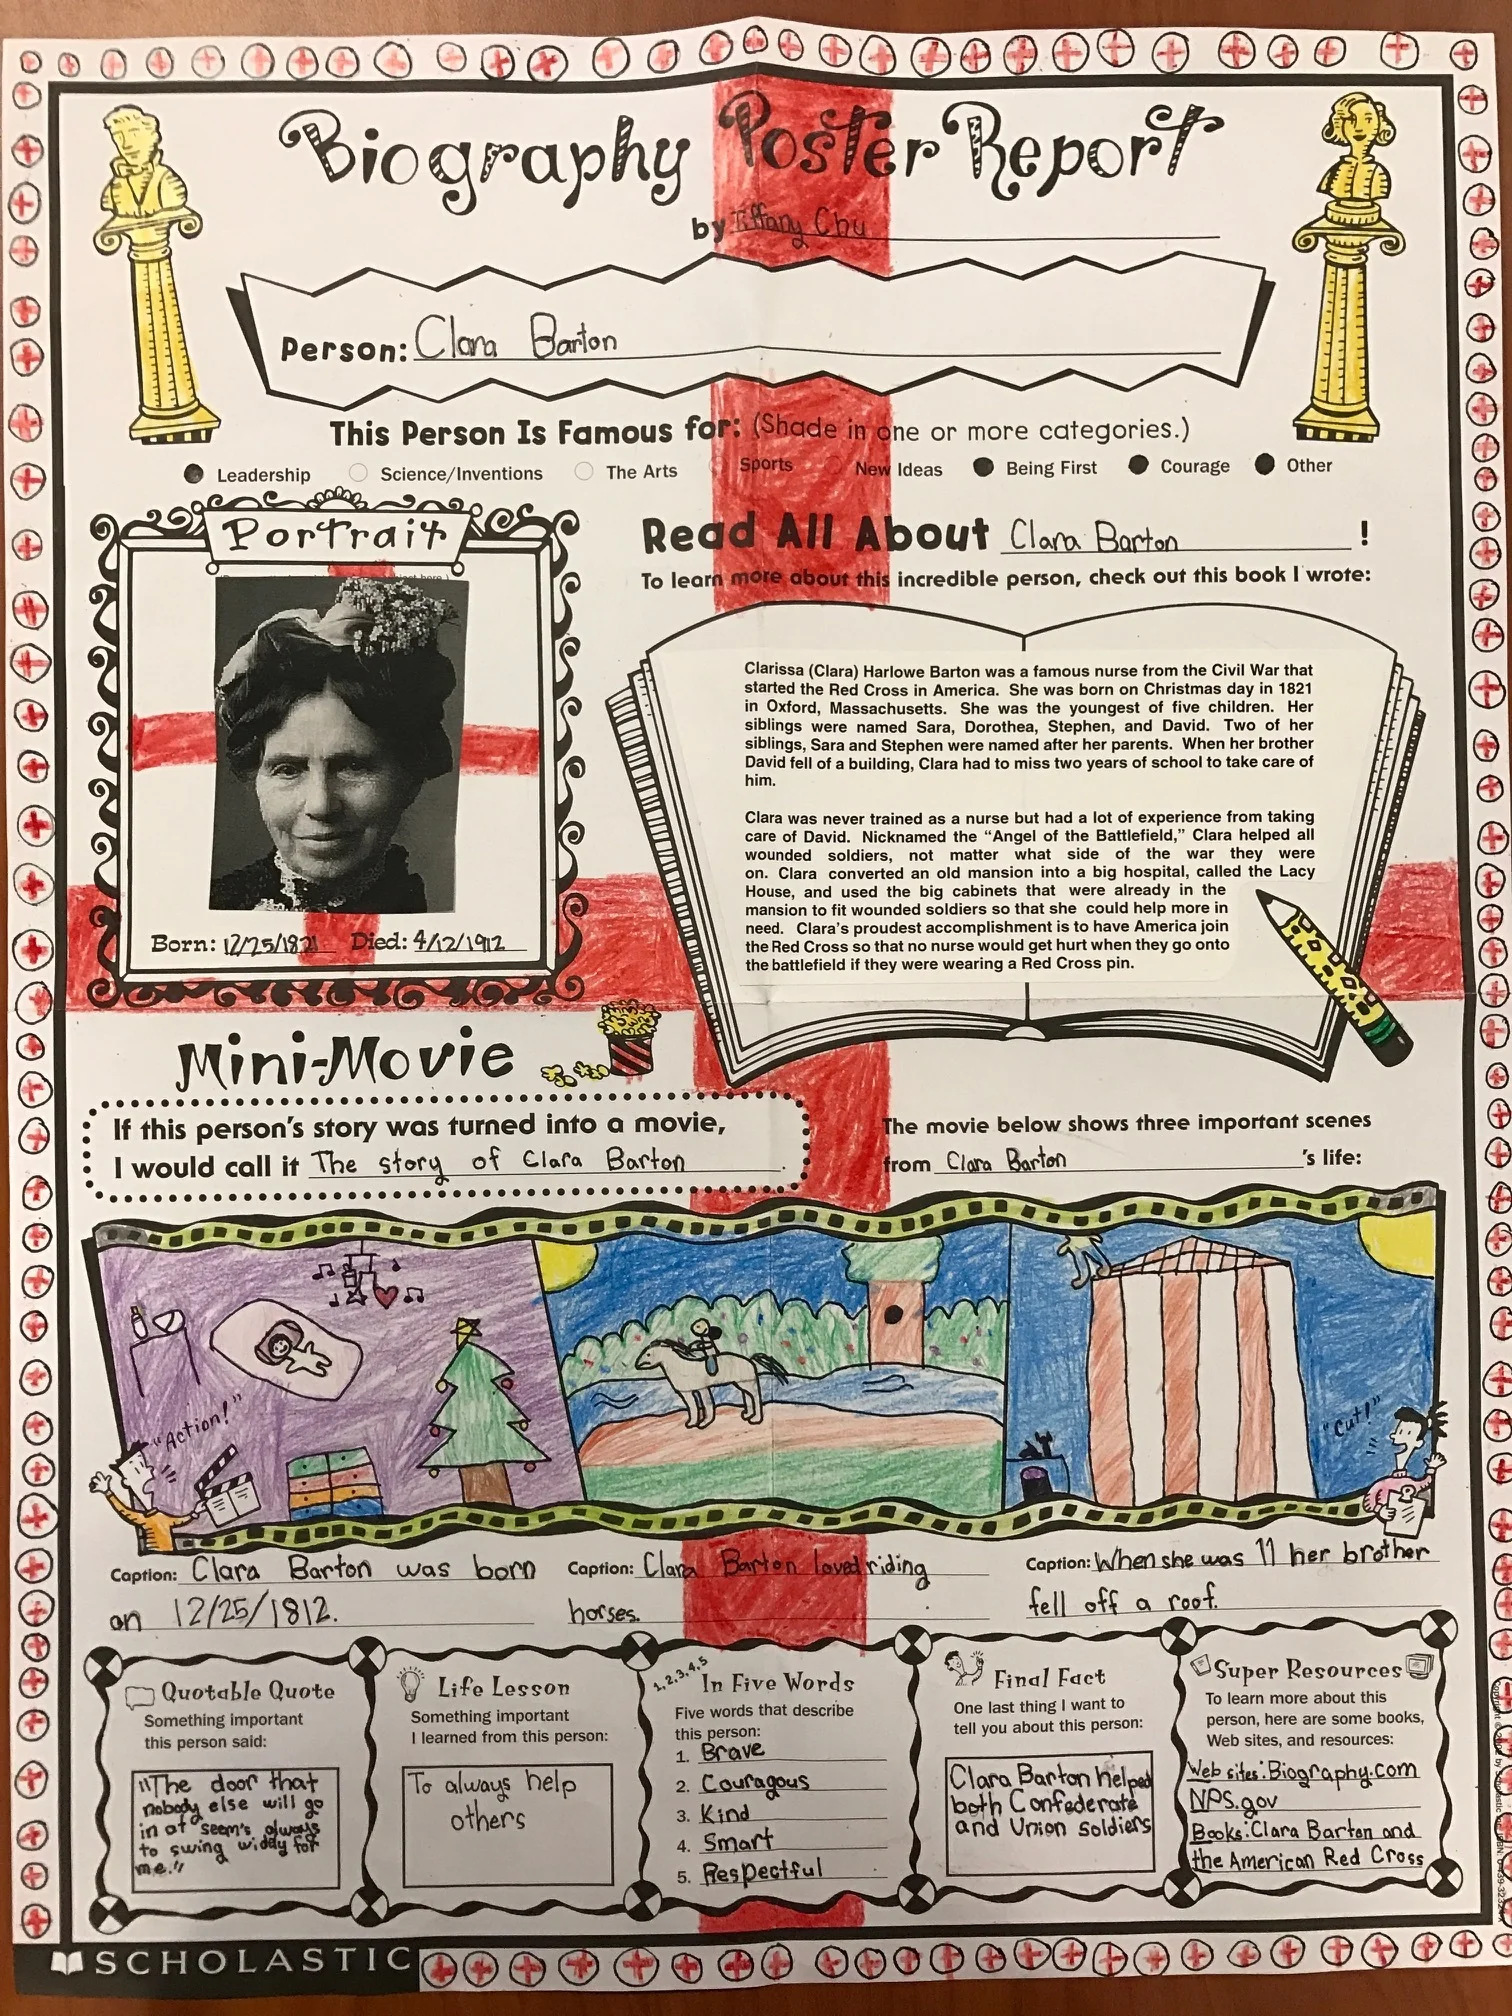 Biography Poster Report
by Tiffany Chu
Person: Clara Barton
This Person Is Famous for: (Shade in one or more categories.)
Leadership Science/Inventions The Arts Sports New Ideas Being First Courage Other
Portrait
Born: 12/25/1821 Died: 4/12/1912
Read All About Clara Barton!
To learn more about this incredible person, check out this book I wrote:
Clarissa (Clara) Harlowe Barton was a famous nurse from the Civil War that
started the Red Cross in America. She was born on Christmas day in 1821
in Oxford, Massachusetts. She was the youngest of five children. Her
siblings were named Sara, Dorothea, Stephen, and David. Two of her
siblings, Sara and Stephen were named after her parents. When her brother
David fell of a building, Clara had to miss two years of school to take care of
him.
Clara was never trained as a nurse but had a lot of experience from taking
care of David. Nicknamed the “Angel of the Battlefield,” Clara helped all
wounded soldiers, not matter what side of the war they were
on. Clara converted an old mansion into a big hospital, called the Lacy
House, and used the big cabinets that were already in the
mansion to fit wounded soldiers so that she could help more in
need. Clara’s proudest accomplishment is to have America join
the Red Cross so that no nurse would get hurt when they go onto
the battlefield if they were wearing a Red Cross pin.
Mini-Movie
If this person’s story was turned into a movie,
I would call it The story of Clara Barton.
The movie below shows three important scenes
from Clara Barton’s life:
"Action!"
"Cut!"
Caption: Clara Barton was born
on 12/25/1812.
Caption: Clara Barton loved riding
horses.
Caption: When she was 11 her brother
fell off a roof.
Quotable Quote
Something important
this person said:
"The door that
nobody else will go
in at seem's always
to swing widdy for
me."
Life Lesson
Something important
I learned from this person:
To always help
others
1, 2, 3, 4, 5
In Five Words
Five words that describe
this person:
1. Brave
2. Couragous
3. Kind
4. Smart
5. Respectful
Final Fact
One last thing I want to
tell you about this person:
Clara Barton helped
both Confederate
and Union soldiers
Super Resources
To learn more about this
person, here are some books,
Web sites, and resources:
Web sites: Biography.com
NPS.gov
Books: Clara Barton and
the American Red Cross
SCHOLASTIC